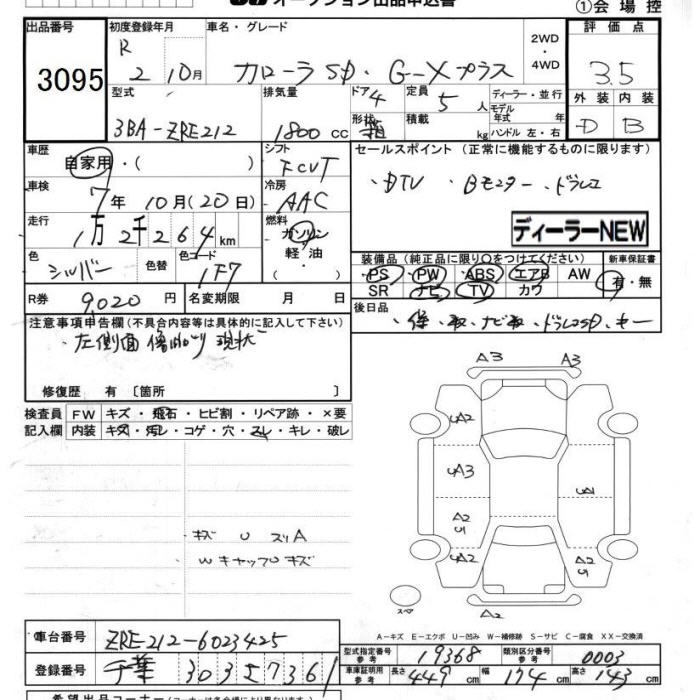 オークション出品申込書
①会場控
出品番号
3095
初度登録年月
R 2 10月
車名・グレード
カローラSD・G-Xプラス
2WD・4WD
評価点
3.5
型式
3BA-ZRE212
排気量
1800cc
ドア 4
形状 箱
定員 5人
積載 kg
ディーラー・並行
モデル年式 年
ハンドル 左・右
外装 内装
D B
車歴
自家用・( )
シフト
FCVT
セールスポイント (正常に機能するものに限ります)
・DTV Bモニター・ドラレコ
車検
7年10月(20日)
冷房
AAC
走行
1万2千264km
燃料
ガソリン
軽油
( )
ディーラーNEW
色
シルバー
色替
色コード
1F7
装備品(純正品に限り○をつけてください)
新車保証書
PS PW ABS エアB AW
SR ナビ TV カワ
有・無
R券 9,020円
名変期限 月 日
後日品
・保・取・ナビ取・ドラレコSD・キー
注意事項申告欄(不具合内容等は具体的に記入して下さい)
・左側面 傷凹り 現状
修復歴 有〔箇所 〕
検査員 FW キズ・飛石・ヒビ割・リペア跡・×要
記入欄 内装 キズ・汚レ・コゲ・穴・スレ・キレ・破レ
A3 A3
UA2 A2
UA3 UA1
A2 U
UA2 A2 U1
キズ U スリA
WキャップUキズ
スペア
A2
A-キズ E-エクボ U-凹み W-補修跡 S-サビ C-腐食 XX-交換済
車台番号 ZRE212-6023425
型式指定番号 参考 19368
類別区分番号 参考 0003
登録番号 千葉 303 ス 7361
車庫証明用 参考 長さ 449cm 幅 174cm 高さ 143cm
希望出品コーナー